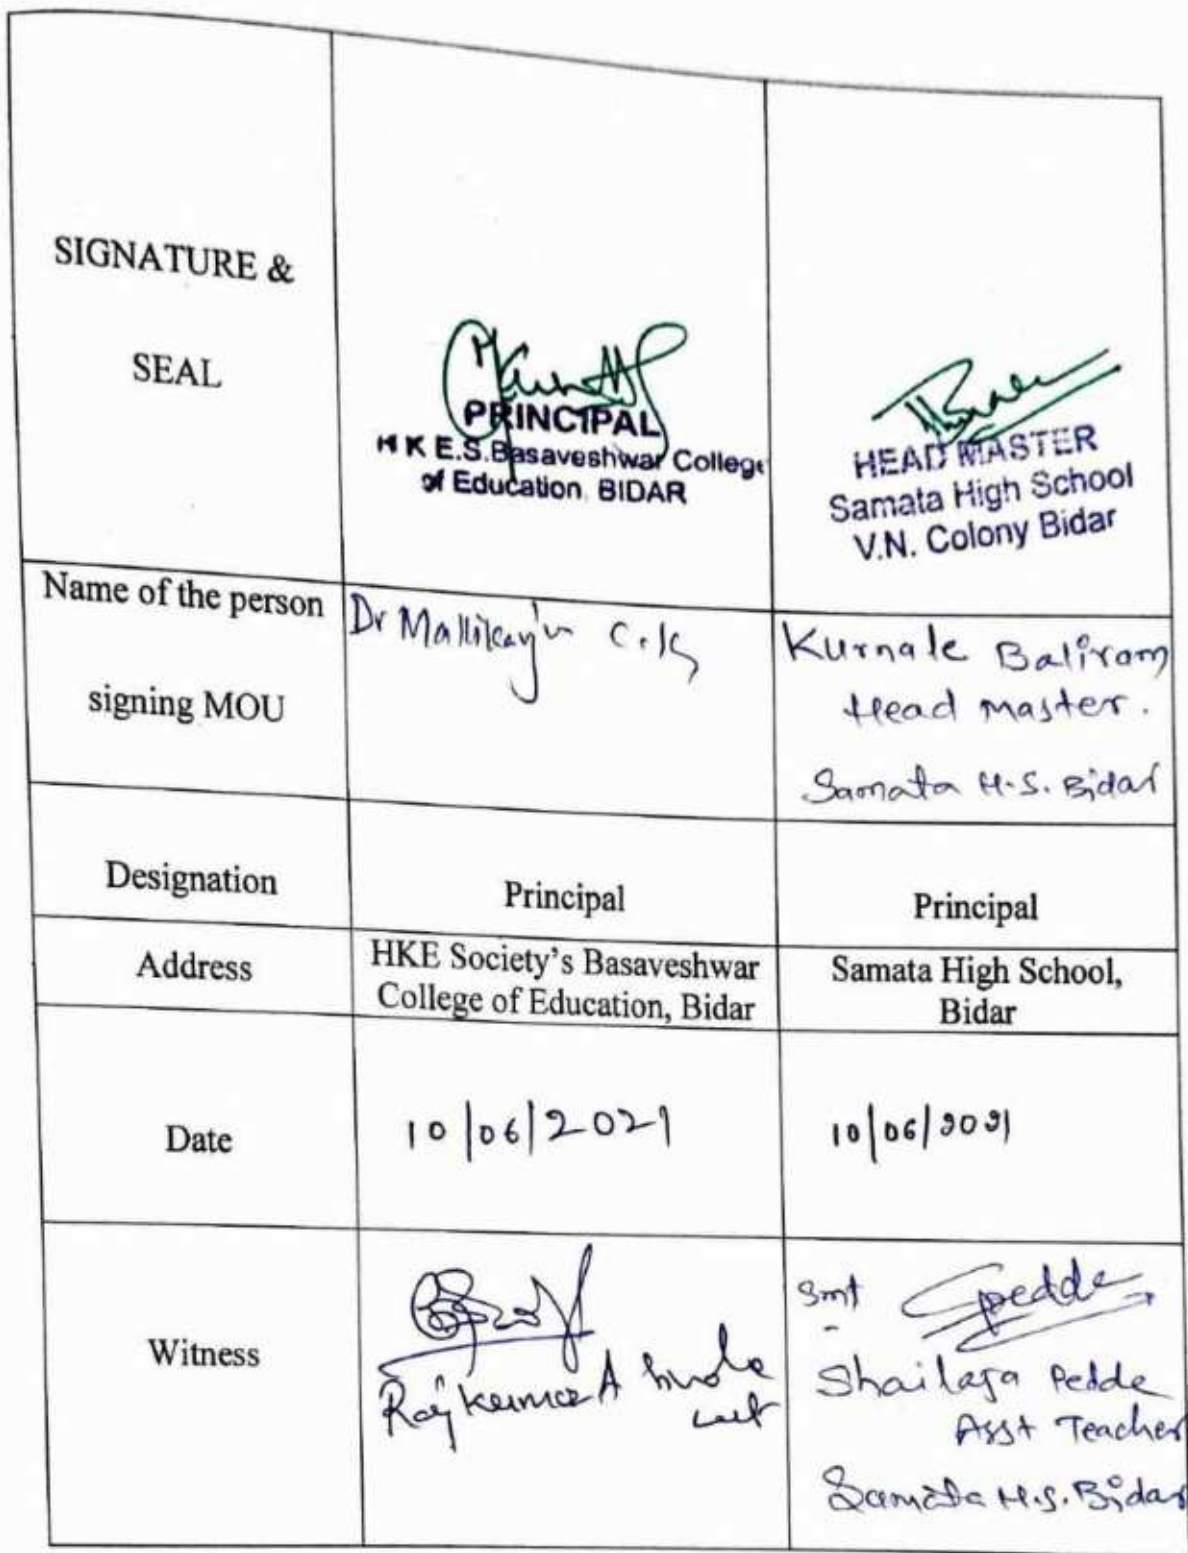 SIGNATURE &
SEAL
PRINCIPAL
H K E.S.Basaveshwar College
of Education. BIDAR
HEAD MASTER
Samata High School
V.N. Colony Bidar
Name of the person
signing MOU
Dr Mallikarjun C.K
Kurnale Baliram
Head Master.
Samata H.S. Bidar
Designation
Principal
Principal
Address
HKE Society's Basaveshwar
College of Education, Bidar
Samata High School,
Bidar
Date
10/06/2021
10/06/2021
Witness
Rajkumar A
Smt Spedde
Shailaja Pedde
Asst Teacher
Samata H.S. Bidar